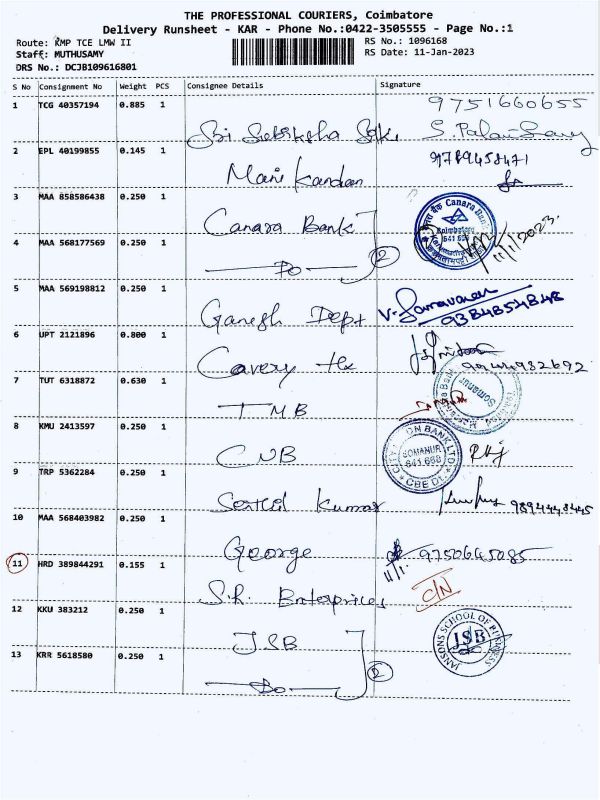 THE PROFESSIONAL COURIERS, Coimbatore
Delivery Runsheet - KAR - Phone No.:0422-3505555 - Page No.:1
Route: KMP TCE LMW II
RS No.: 1096168
Staff: MUTHUSAMY
RS Date: 11-Jan-2023
DRS No.: DCJB109616801
S No Consignment No Weight PCS Consignee Details Signature
1 TCG 40357194 0.885 1 9751660655
Sri
2 EPL 40199855 0.145 1 9789458471
Mani Kandan
3 MAA 858586438 0.250 1
Canara Bank
Canara Bank
Coimbatore
641 668
11/1/2023
4 MAA 568177569 0.250 1
Do
2
5 MAA 569198812 0.250 1
Ganesh Dept V. Saravanan
9384854848
6 UPT 2121896 0.800 1
Cavery tex
7 TUT 6318872 0.630 1
TMB
Somanur
8 KMU 2413597 0.250 1
CUB
SOMANUR
641 668
CBE DT.
9 TRP 5362284 0.250 1
Senthil Kumar
10 MAA 568403982 0.250 1
George 9750645085
11/1
11 HRD 389844291 0.155 1
C/N
S.R. Enterprices
12 KKU 383212 0.250 1
JSB
JANSONS SCHOOL OF BUSINESS
JSB
13 KRR 5618580 0.250 1
Do
2